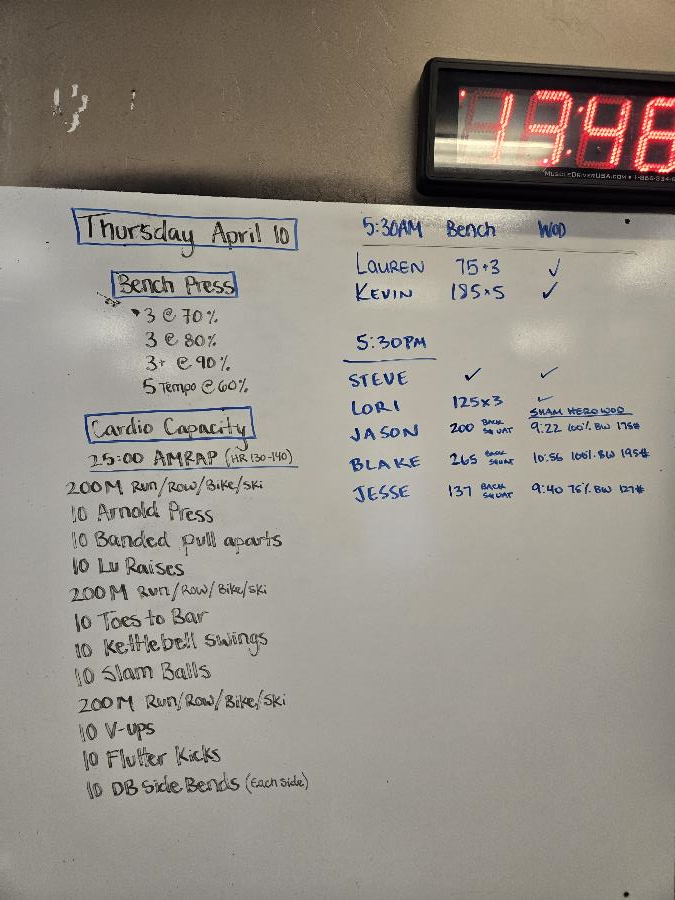 19:46
MuscleDriverUSA.com • 1-888-
Thursday April 10
Bench Press
3 @ 70%
3 @ 80%
3+ @ 90%
5 Tempo @ 60%
Cardio Capacity
25:00 AMRAP (HR 130-140)
200M Run/Row/Bike/Ski
10 Arnold Press
10 Banded pull aparts
10 Lu Raises
200M Run/Row/Bike/Ski
10 Toes to Bar
10 Kettlebell swings
10 Slam Balls
200M Run/Row/Bike/Ski
10 V-ups
10 Flutter Kicks
10 DB Side Bends (Each side)
5:30AM Bench WOD
LAUREN 75+3 ✓
KEVIN 185x5 ✓
5:30PM
STEVE ✓ ✓
LORI 125x3 ✓
SHAM HERO WOD
JASON 200 BACK SQUAT 9:22 100% BW 175#
BLAKE 265 BACK SQUAT 10:56 100% BW 195#
JESSE 137 BACK SQUAT 9:40 75% BW 127#